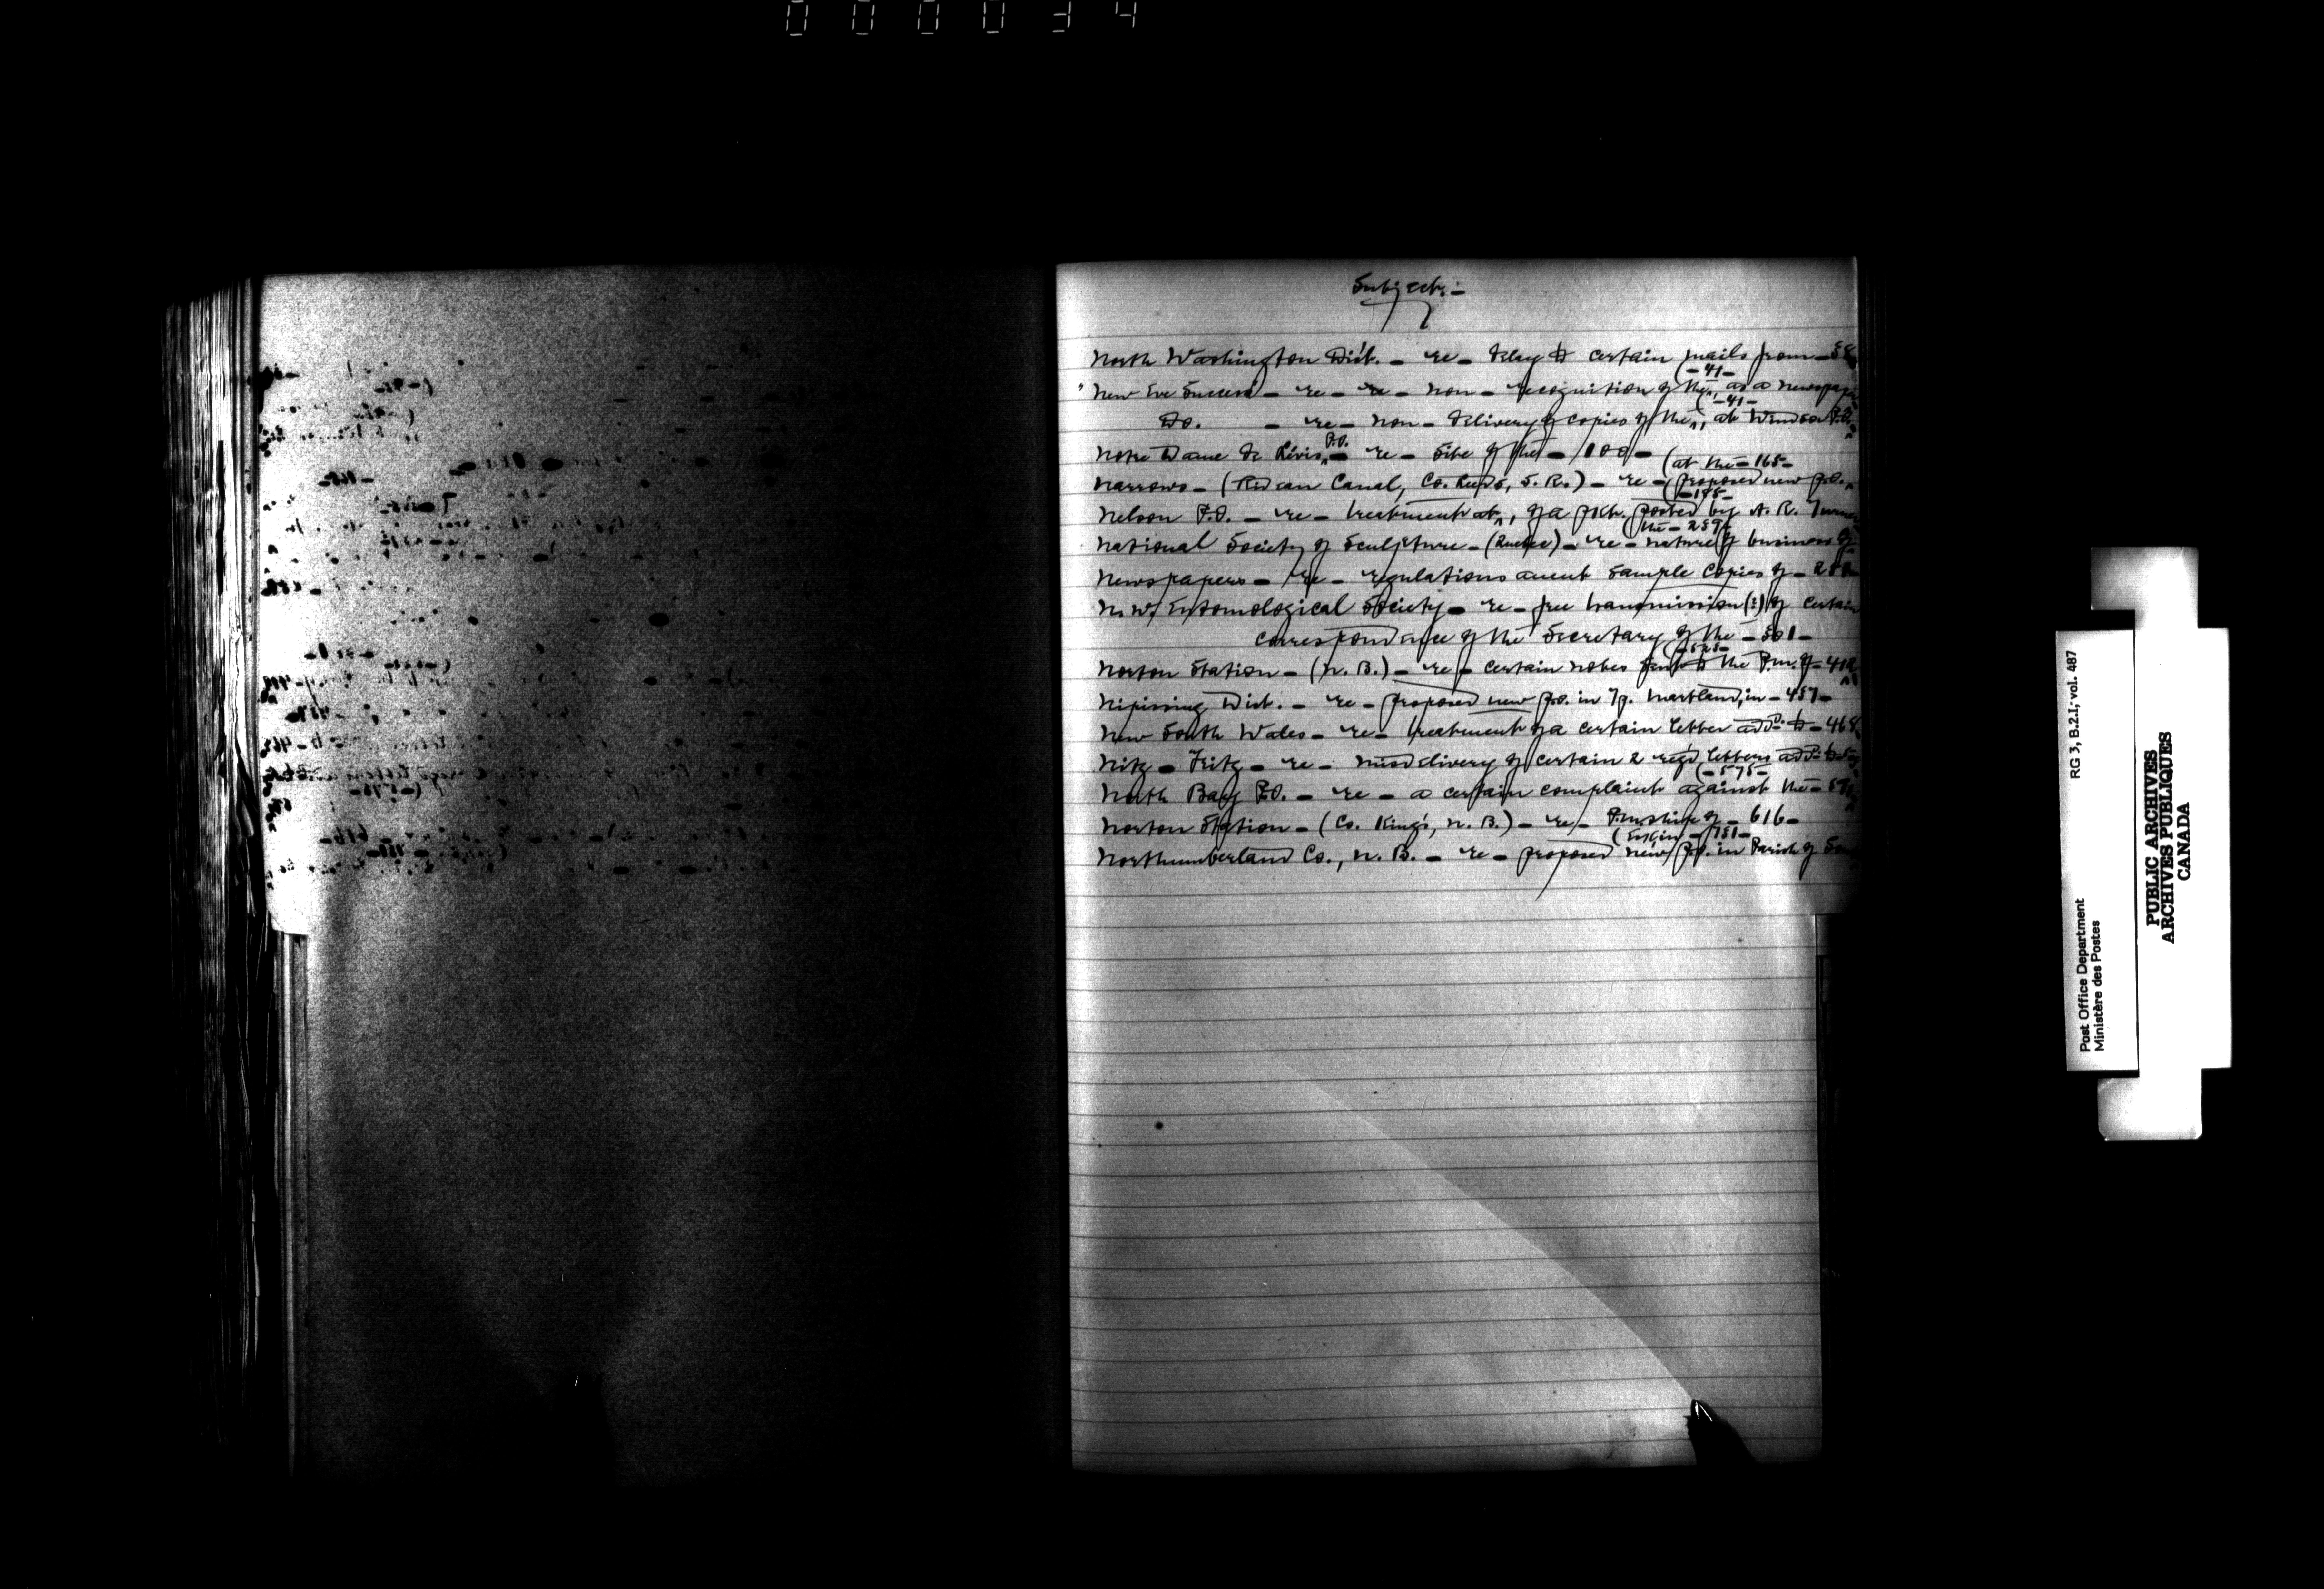 000034
Subjects:-
North Washington Dist. - re - delay to certain mails from - 
(- 41 -
"New Eve Success - re - re - non - recognition of the, as a newspaper
(- 41 -
Do. - re - non - delivery of copies of the, at Windsor P.O.
P.O.
Notre Dame de Lévis - re - site of the - 100 -
(at the - 165 -
Narrows - (Rideau Canal, Co. Leeds, S. R.) - re - proposed new p.o.
(- 185 -
Nelson P.O. - re - treatment at, of a pkt. posted by A. R. Turner
(the - 259
National Society of Sculpture - (Quebec) - re - nature of business of
Newspapers - re - regulations anent sample copies of -
N.W. Entomological Society - re - free transmission (?) of certain
correspondence of the Secretary of the - 301 -
(- 525 -
Norton Station - (N. B.) - re - certain notes sent to the P.m. of - 412
Nipissing Dist. - re - proposed new p.o. in Tp. Martland, in - 457 -
New South Wales - re - treatment of a certain letter add. to - 468
Nitz - Fritz - re - misdelivery of certain 2 reg'd letters add. to
(- 575 -
North Bay P.O. - re - a certain complaint against the -
Norton Station - (Co. King's, N. B.) - re - P.m.ship of - 616 -
- 751 -
Northumberland Co., N. B. - re - proposed new p.o. in Parish of
RG 3, B.2.I, vol. 487
Post Office Department
Ministère des Postes
PUBLIC ARCHIVES
ARCHIVES PUBLIQUES
CANADA